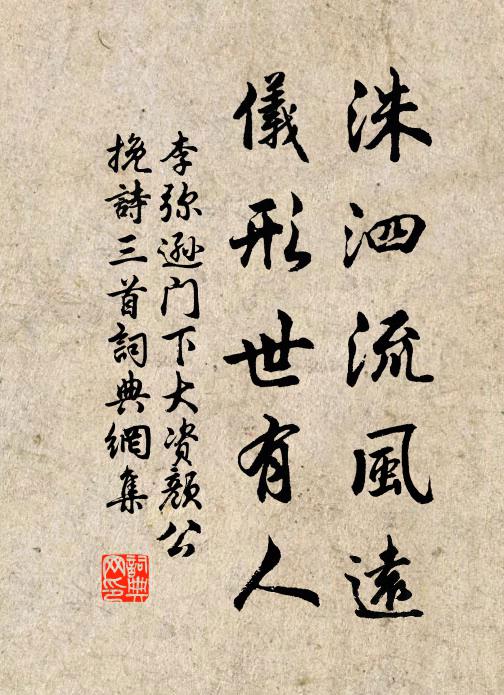 洙泗流風遠
儀形世有人
李弥遜门下大资顏公
挽詩三首詞典網集
詞典网印